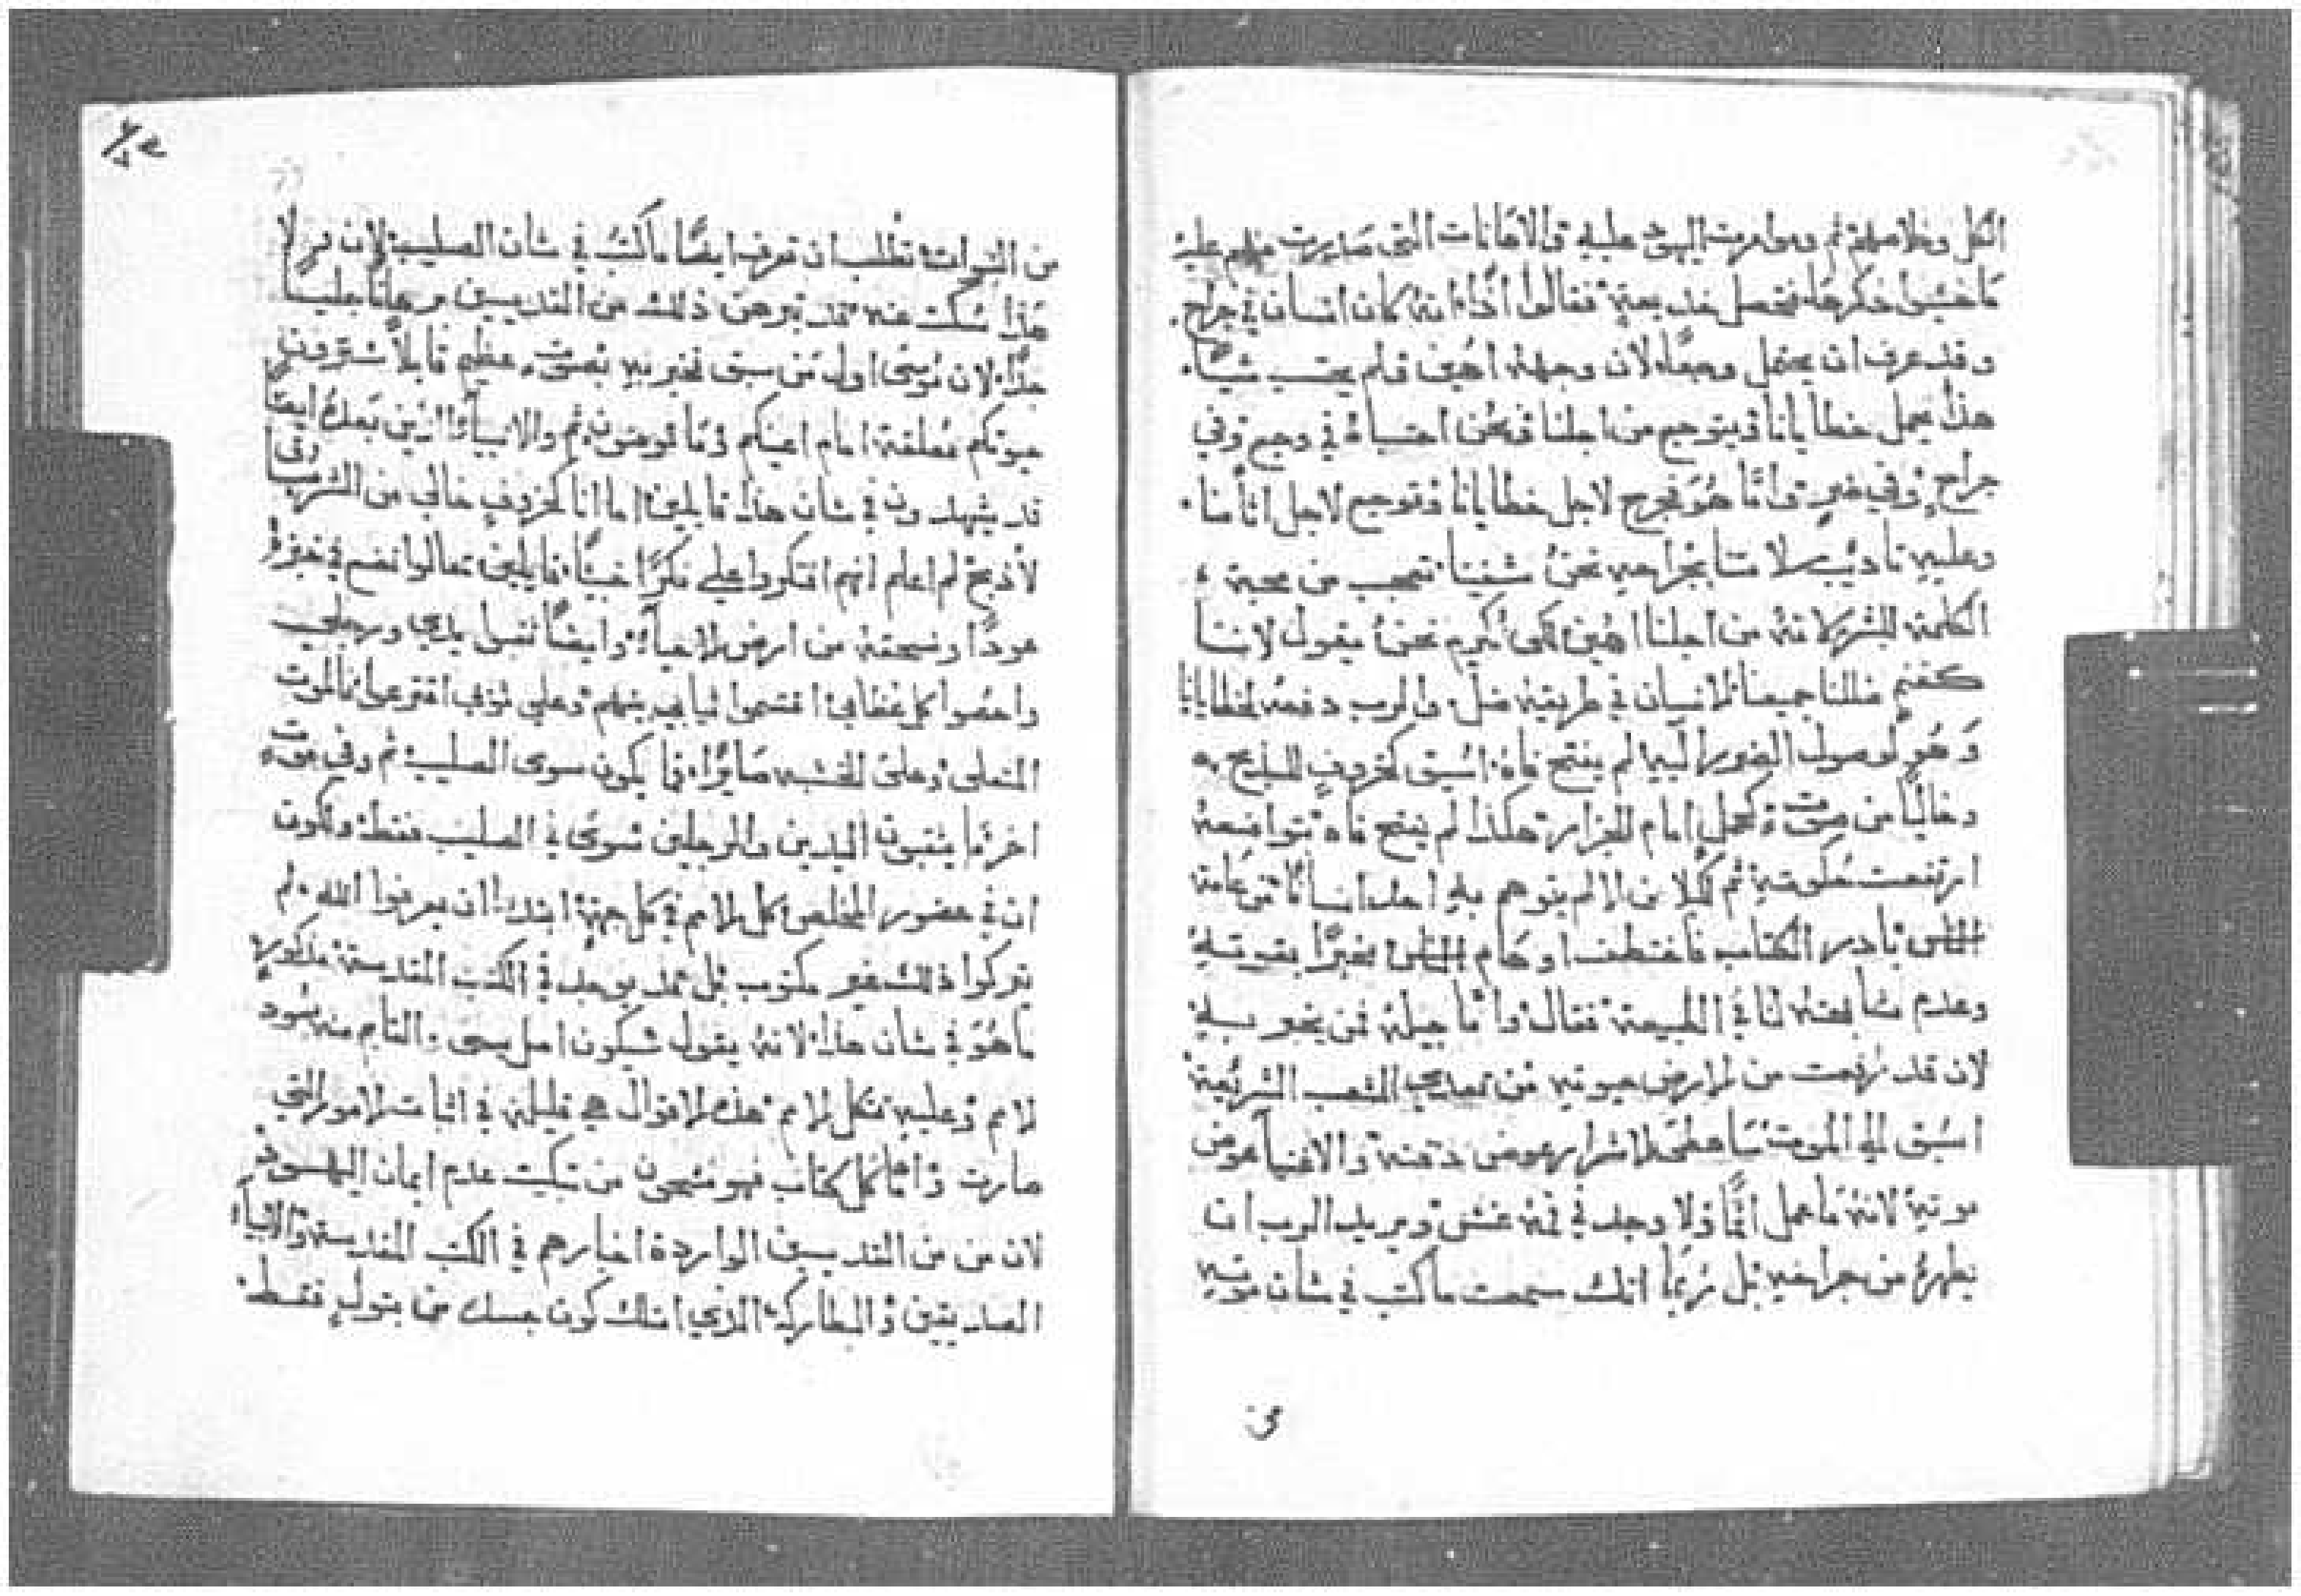 الكل وخلاصهم ثم ومؤامرت اليهود عليه والاهانات التي صايرت منهم عليه
ما خشيوا ذكرها فتحصل خديعة فقالوا اذًا انه كان انسان في جراح.
وقد عرف ان يحتمل وجعًا لان وجهه اهين ولم يحتسب شيًا.
هذا يحمل خطايانا ويتوجع من اجلنا ونحن احتسبناه في وجع وفي
جراح وفي ضر واما هو فجرح لاجل خطايانا وتوجع لاجل اثامنا.
وعليه تاديب سلامتنا بجراحه نحن شفينا تعجب من محبة
الكلمة للبشر لانه من اجلنا اهين لكي نكرم نحن يقول لاننا
كغنم ضللنا جميعنا الانسان في طريقه ضل والرب دفعه لخطايانا
وهو لوصول الضور اليه لم يفتح فاه اسيق كخروف للذبح
وخاليًا من صوت وكحمل امام الجزار هكذا لم يفتح فاه بتواضعه
ارتفعت حكومته ثم لم يتوهم به احد انسانًا من عامة
الناس بادر الكتاب فاختطف اوهام الناس مخبرًا بقوته
وعدم مشابهته لنا في الطبيعة فقال واما جيله فمن يخبر به
لان قد رفعت من الارض حيوته من تعدي الشعب الشريعة
اسيق الي الموت ساعطي الاشرار عوض دفنه والاغنيآ عوض
موته لانه ما عمل اثمًا ولا وجد في فمه غش ويريد الرب ان
يطهره من جراحه بل ربما انك سمعت ما كتب في شان موته
من
من النبوات تطلب ان تعرف ايضًا ما كتب في شان الصليب لان ولا
هذا سكت عنه قد تبرهن ذلك من القديسين برهانًا جليًا
جدًا لان موسى اول من سبق فخبر به بصوت عظيم قايلًا سترون
حيوتكم معلقة امام اعينكم وما تومنون ثم والانبيآء الذين بعده ايضًا
قد يشهدون في شان هذا قايلين اما انا كخروف خالي من الشر
لاذبح لم اعلم انهم افتكروا علي فكرًا خبيثًا قايلين تعالوا نضع في خبزه
عودًا ونسحقه من ارض الاحيآء وايضًا ثقبوا يدي ورجلي
واحصوا كل عظامي اقتسموا ثيابي بينهم وعلي ثوبي اقترعوا فالموت
المتعلى وعلى الخشبه صايرًا فما يكون سوى الصليب ثم وفي موت
اخر ما يثقبون اليدين والرجلين سوى في الصليب فقط ولكون
ان في حضور المخلص كل الامم في كل جهة ابتدا ان يعرفوا الله لم
يتركوا ذلك غير مكتوب بل قد يوجد في الكتب المقدسة مذكورًا
ما هو في شان هذا لانه يقول سيكون اصل يسى والقايم منه يسود
الامم وعليه تتكل الامم هذه الاقوال هي قليلة في اثبات الامور التي
صارت واما كل كتاب فهو مشحون من تبكيت عدم ايمان اليهود
لان من من القديسين الواردة اخبارهم في الكتب المقدسة والانبيآء
الصديقين والبطاركة الذي امتلك كون جسده من بتول فقط